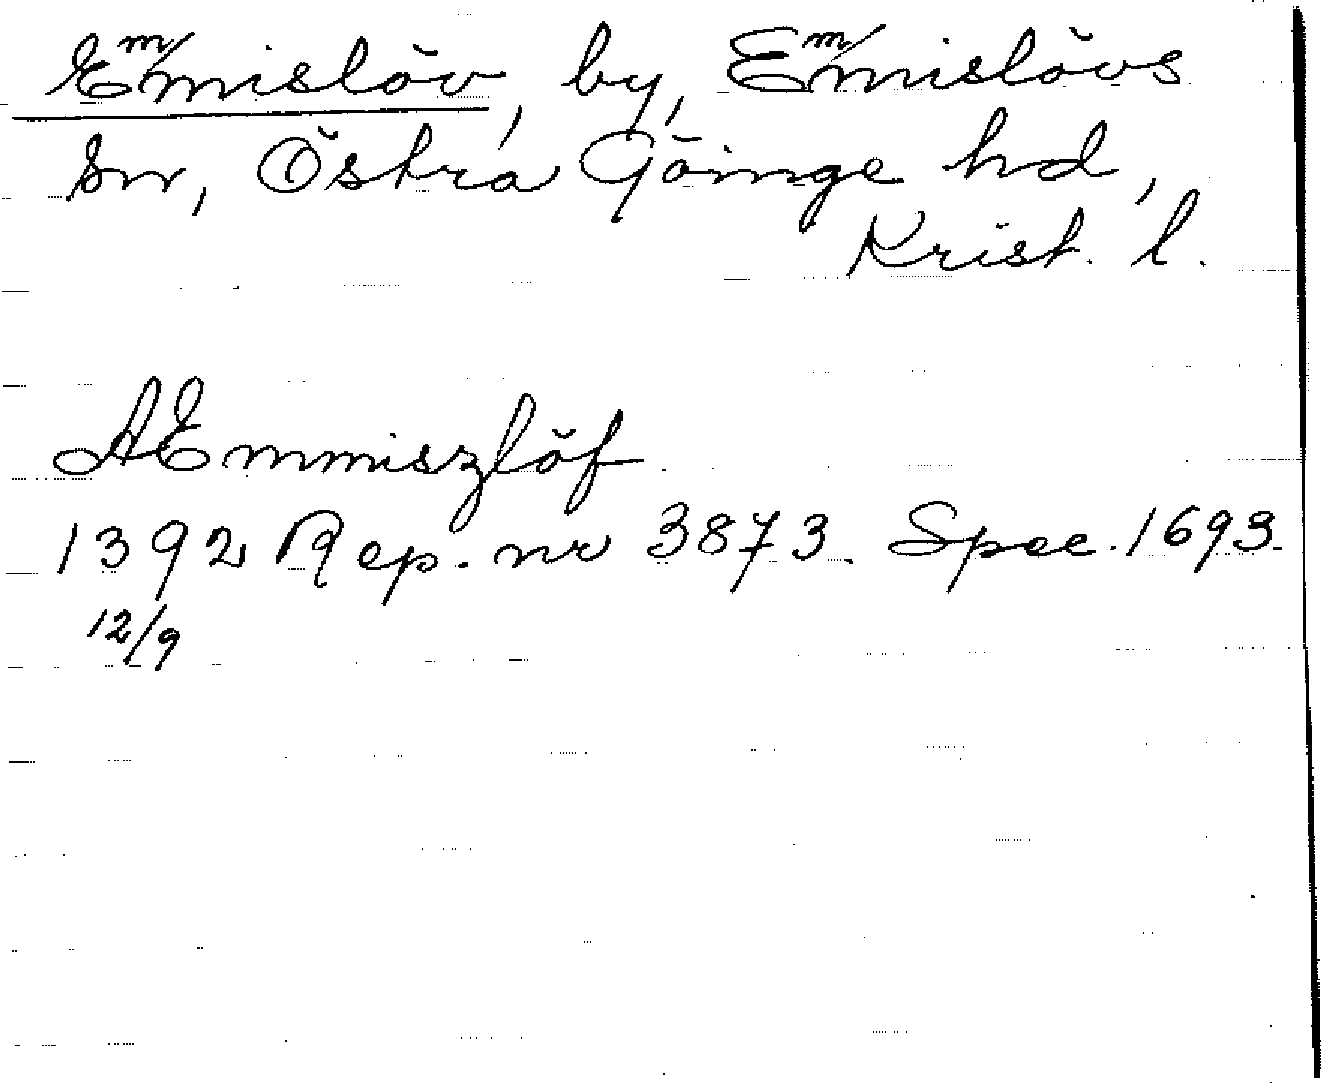 Emmislöv, by, Emmislövs
sn, Östra Göinge hd,
Krist. l.
AEmmiszlöf
1392 Rep. nr 3873. Spec. 1693.
12/9